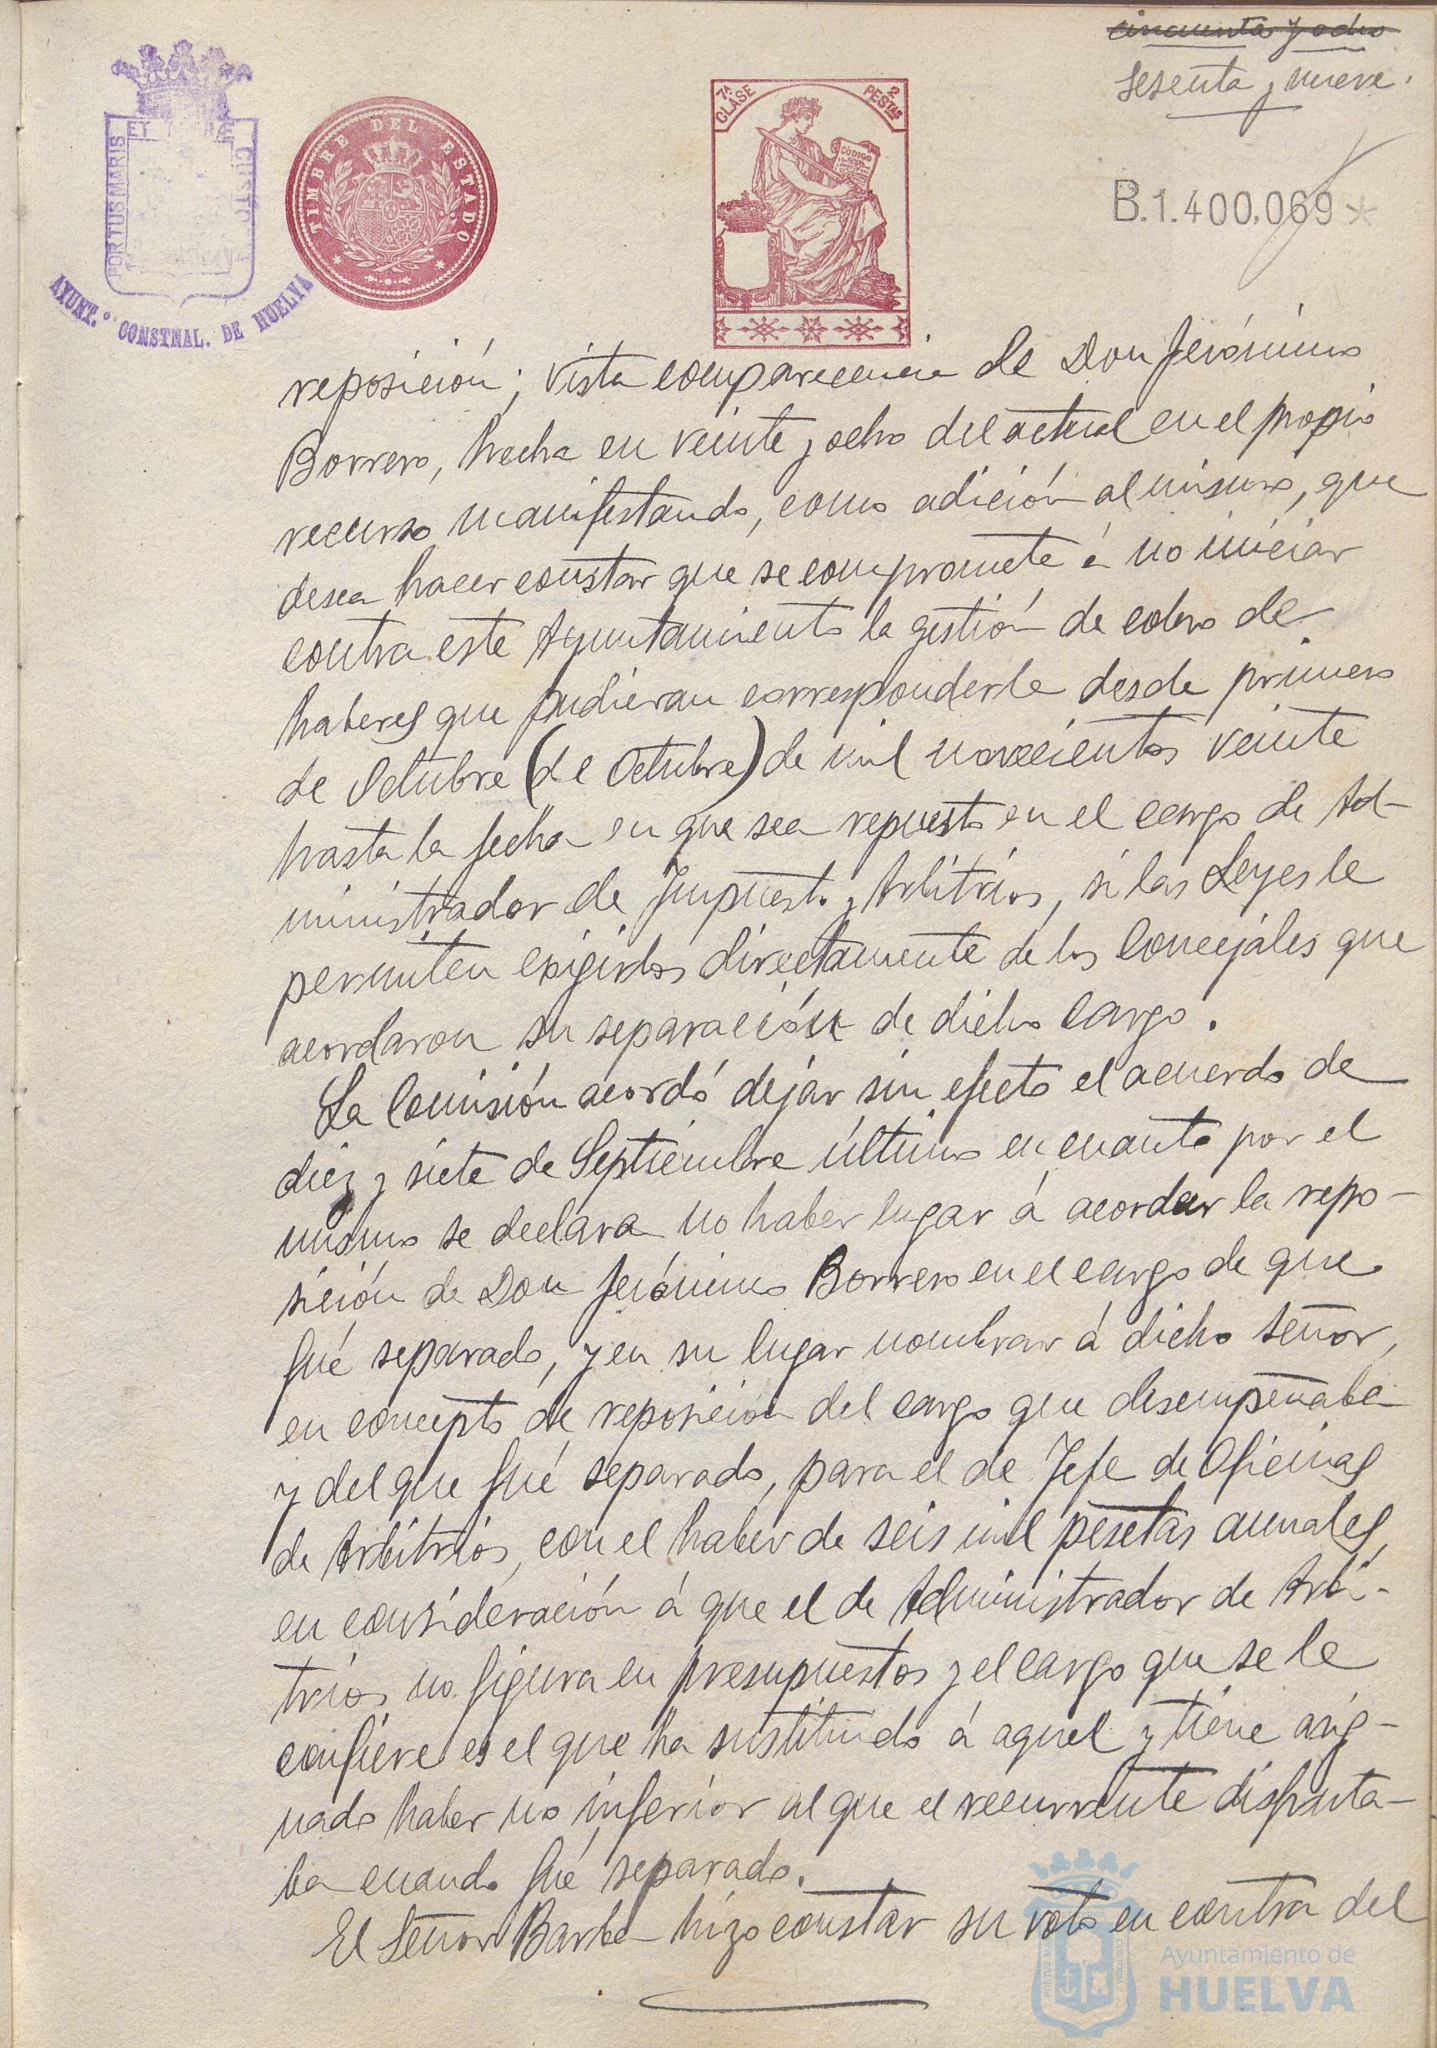 cincuenta y ocho
sesenta y nueve.
PORTUS MARIS ET TERRE CUSTO
AYUNT.º CONSTNAL. DE HUELVA
TIMBRE DEL ESTADO
7ª CLASE
2 PESTAS
CÓDIGO
B.1.400,069*
reposición; vista comparecencia de Don Jerónimo
Borrero, hecha en veinte y ocho del actual en el propio
recurso manifestando, como adición al mismo, que
desea hacer constar que se compromete á no iniciar
contra este Ayuntamiento la gestión de cobro de
haberes que pudieran corresponderle desde primero
de Octubre (de Octubre) de mil novecientos veinte
hasta la fecha en que sea repuesto en el cargo de Ad-
ministrador de Impuesto y Arbitrios, si las Leyes le
permiten exigirlos directamente de los Concejales que
acordaron su separación de dicho cargo.
La Comisión acordó dejar sin efecto el acuerdo de
diez y siete de Septiembre último en cuanto por el
mismo se declara no haber lugar á acordar la repo-
sición de Don Jerónimo Borrero en el cargo de que
fué separado, y en su lugar nombrar á dicho señor,
en concepto de reposición del cargo que desempeñaba
y del que fué separado, para el de Jefe de Oficinas
de Arbitrios, con el haber de seis mil pesetas anuales,
en consideración á que el de Administrador de Arbi-
trios no figura en presupuestos y el cargo que se le
confiere es el que ha sustituido á aquel y tiene asig-
nado haber no inferior al que el recurrente disfruta-
ba cuando fué separado.
El Señor Barba hizo constar su voto en contra del
Ayuntamiento de
HUELVA